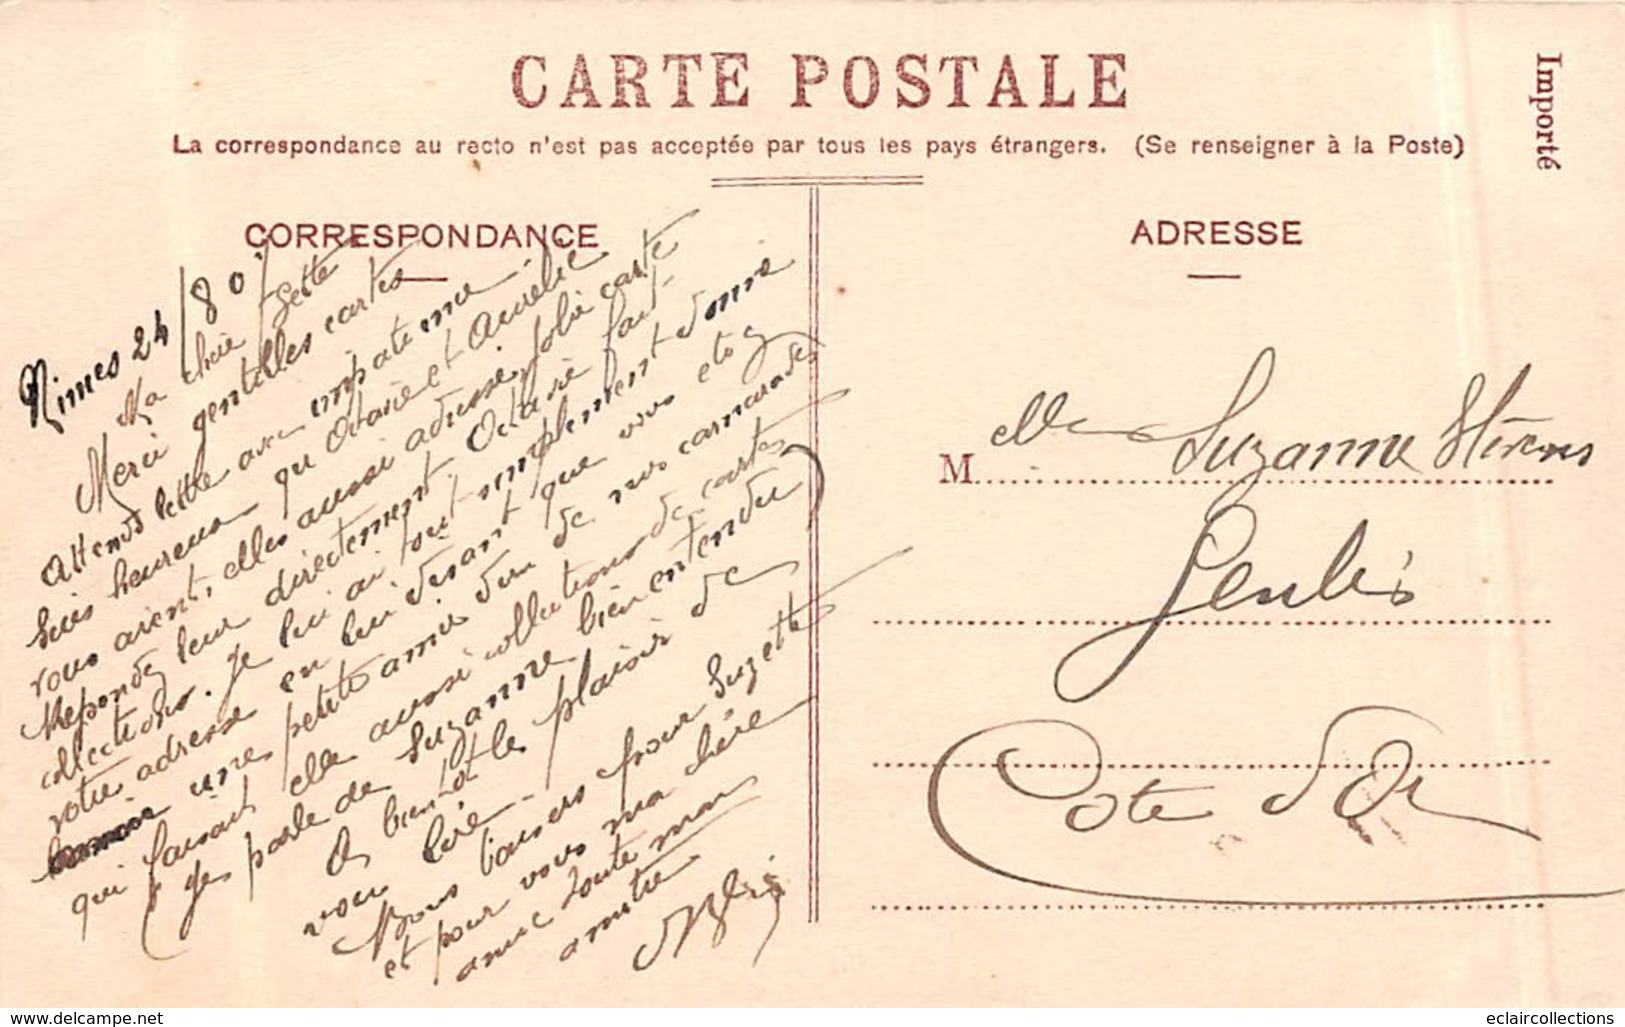 CARTE POSTALE
Importé
La correspondance au recto n'est pas acceptée par tous les pays étrangers. (Se renseigner à la Poste)
CORRESPONDANCE
ADRESSE
Nimes 24/8 07
Ma chère
Merci gentilles cartes
Attends lettre avec impatience.
Suis heureux qu'Octavie et Aurélie
vous aient, elles aussi adressé, jolie carte
Répondez leur directement. Octavie fait
collections. Je lui ai tout simplement donné
votre adresse en lui disant que vous etiez
une petite amie d'un de nos camarades
qui faisait elle aussi collections de cartes
(Je parle de Suzanne bien entendu)
A bientôt le plaisir de
vous lire.
Bons baisers pour Suzette
et pour vous ma chère
avec toute mon
amitié
M. Mlle Suzanne
Genlis
Cote d'Or
www.delcampe.net
eclaircollections